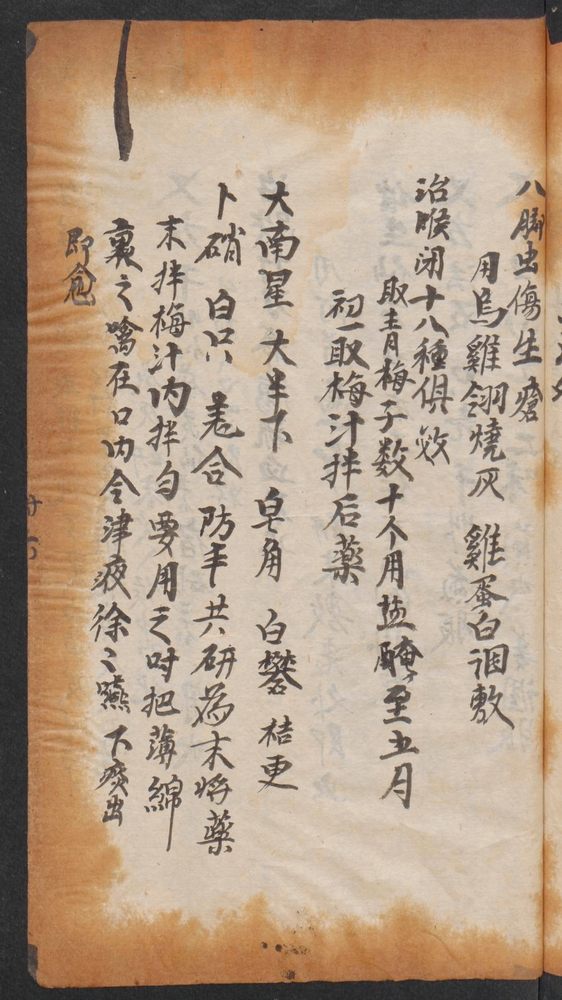 八脚虫傷生瘡
用烏雞翎燒灰 雞蛋白调敷
治喉闭十八種俱效
取青梅子数十个用盐醃至五月
初一取梅汁拌后薬
大南星 大半下 皂角 白礬 桔更
卜硝 白只 羌合 防丰 共研為末将薬
末拌梅汁内拌匀要用之时把薄綿
裏之噙在口内令津液徐〻嚥下痰出
即愈